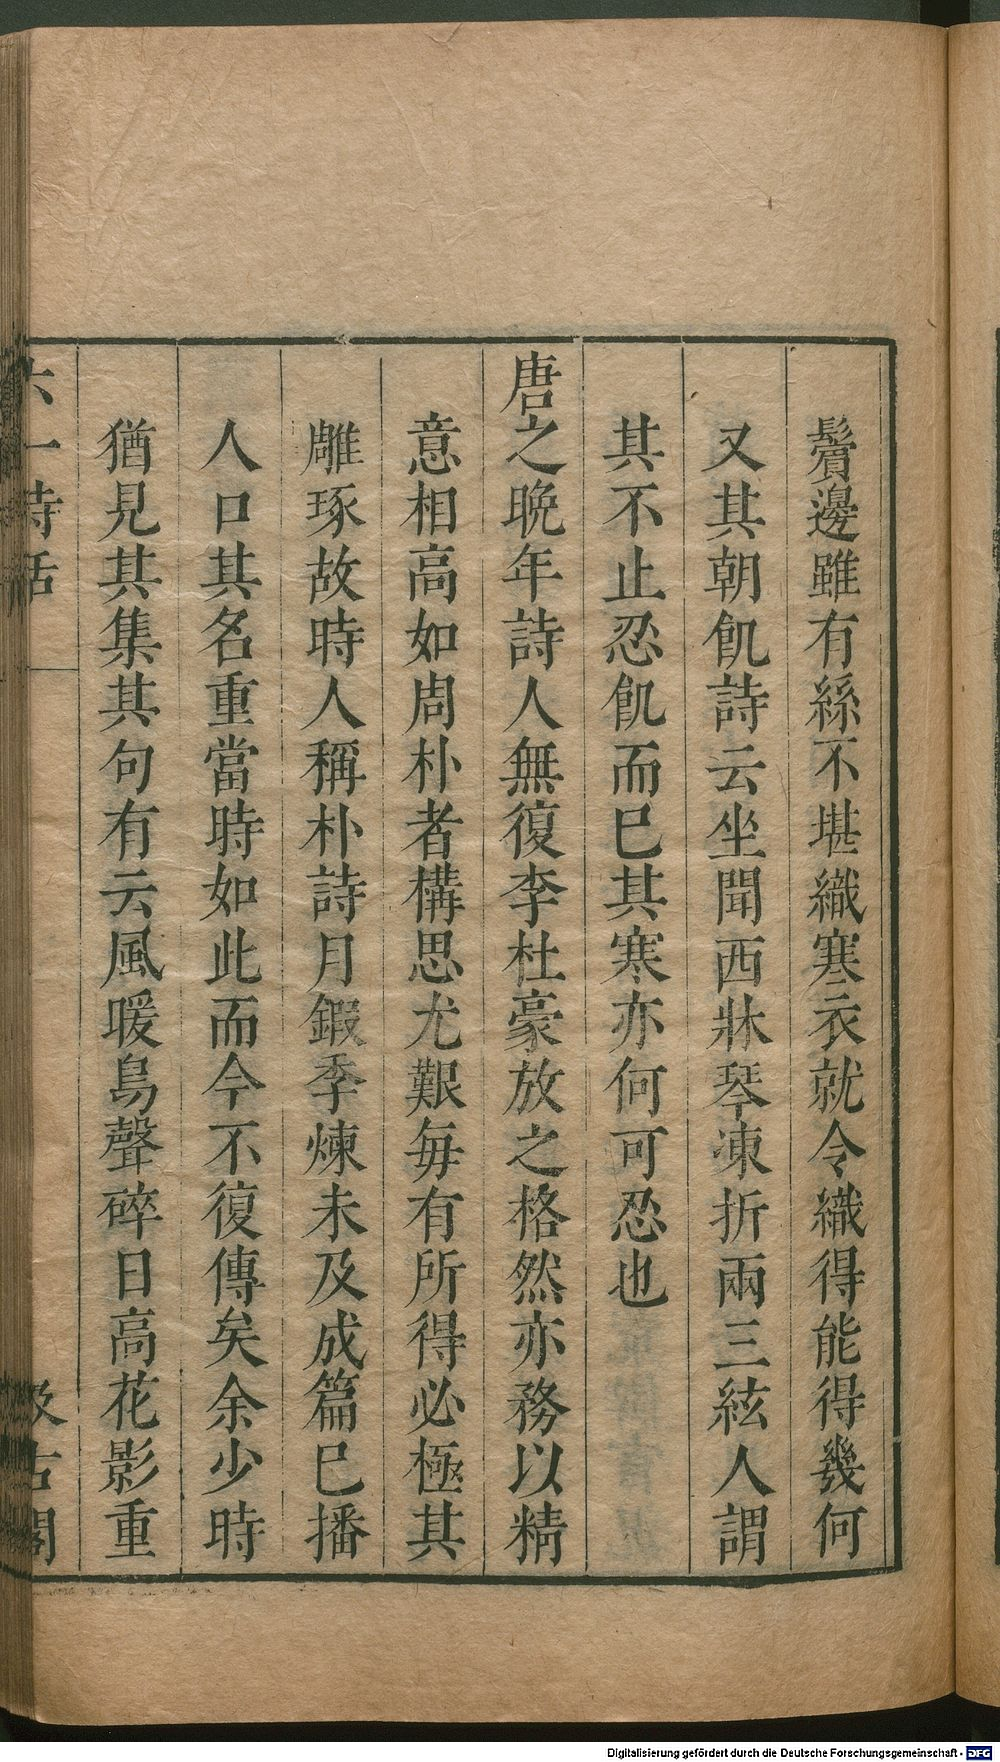 鬢邊雖有絲不堪織寒衣就令織得能得幾何
又其朝飢詩云坐聞西牀琴凍折兩三絃人謂
其不止忍飢而巳其寒亦何可忍也
唐之晚年詩人無復李杜豪放之格然亦務以精
意相高如周朴者構思尤艱每有所得必極其
雕琢故時人稱朴詩月鍜季煉未及成篇巳播
人口其名重當時如此而今不復傳矣余少時
猶見其集其句有云風暖鳥聲碎日高花影重
六一詩話
汲古閣
Digitalisierung gefördert durch die Deutsche Forschungsgemeinschaft - DFG